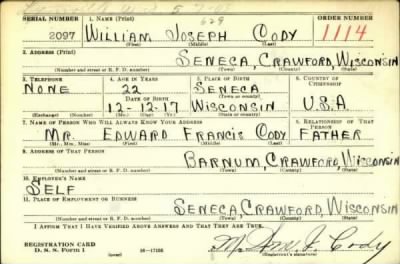 SERIAL NUMBER 1. NAME (Print) ORDER NUMBER
629
2097 WILLIAM JOSEPH CODY 1114
(First) (Middle) (Last)
2. ADDRESS (Print)
SENECA, CRAWFORD, WISCONSIN
(Number and street or R. F. D. number) (Town) (County) (State)
3. TELEPHONE 4. AGE IN YEARS 5. PLACE OF BIRTH 6. COUNTRY OF CITIZENSHIP
NONE 22 SENECA
DATE OF BIRTH (Town or county)
12-12-17 WISCONSIN U.S.A
(Exchange) (Number) (Mo.) (Day) (Yr.) (State or country)
7. NAME OF PERSON WHO WILL ALWAYS KNOW YOUR ADDRESS 8. RELATIONSHIP OF THAT PERSON
MR. EDWARD FRANCIS CODY FATHER
(Mr., Mrs., Miss) (First) (Middle) (Last)
9. ADDRESS OF THAT PERSON
BARNUM, CRAWFORD, WISCONSIN
(Number and street or R. F. D. number) (Town) (County) (State)
10. EMPLOYER'S NAME
SELF
11. PLACE OF EMPLOYMENT OR BUSINESS
SENECA, CRAWFORD, WISCONSIN
(Number and street or R. F. D. number) (Town) (County) (State)
I AFFIRM THAT I HAVE VERIFIED ABOVE ANSWERS AND THAT THEY ARE TRUE.
REGISTRATION CARD
D. S. S. Form 1 (over) 16-17105 Cody
(Registrant's signature)